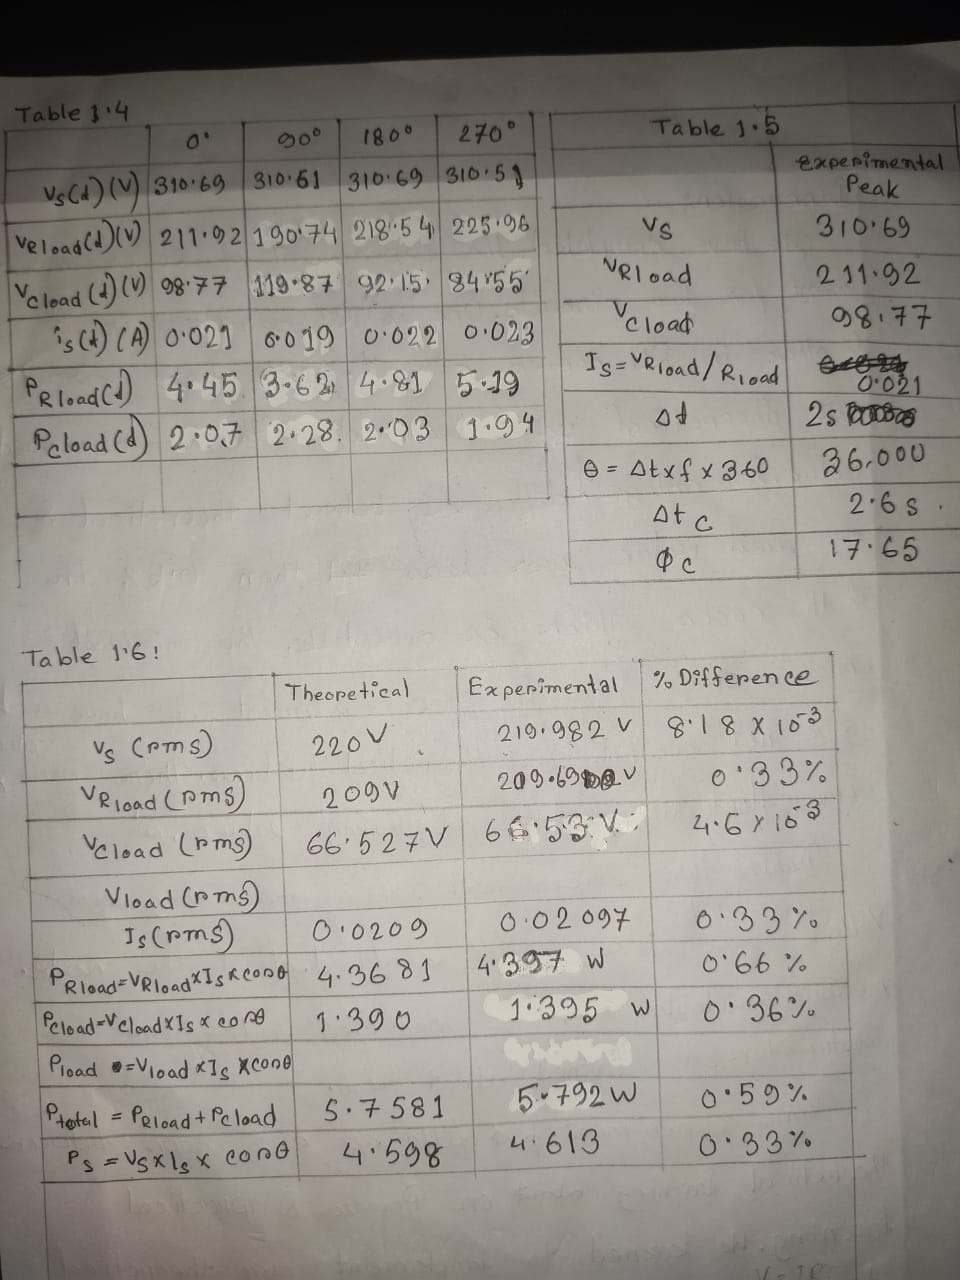 Table 1.4
0° 90° 180° 270°
Vs(t)(V) 310.69 310.51 310.69 310.51
VRload(t)(V) 211.92 190.74 218.54 225.96
Vcload(t)(V) 98.77 119.87 92.15 84.55
is(t)(A) 0.021 0.019 0.022 0.023
PRload(t) 4.45 3.62 4.81 5.19
Pcload(t) 2.07 2.28. 2.03 1.94
Table 1.5
Experimental
Peak
Vs 310.69
VRload 211.92
Vcload 98.77
Is=VRload/Rload 0.021
Δt 2s
θ = Δt×f×360 36,000
Δtc 2.6 s.
Φc 17.65
Table 1.6:
Theoretical Experimental % Difference
Vs (rms) 220V 219.982 V 8.18 × 10-3
VRload (rms) 209V 209.69 V 0.33%
Vcload (rms) 66.527V 66.53 V. 4.6 × 10-3
Vload (rms)
Is (rms) 0.0209 0.02097 0.33%
PRload=VRload×Is×cosθ 4.3681 4.397 W 0.66 %
Pcload=Vcload×Is×cosθ 1.390 1.395 W 0.36%
Pload =Vload×Is×cosθ
Ptotal = PRload+Pcload 5.7581 5.792W 0.59%
Ps = Vs×Is× cosθ 4.598 4.613 0.33%